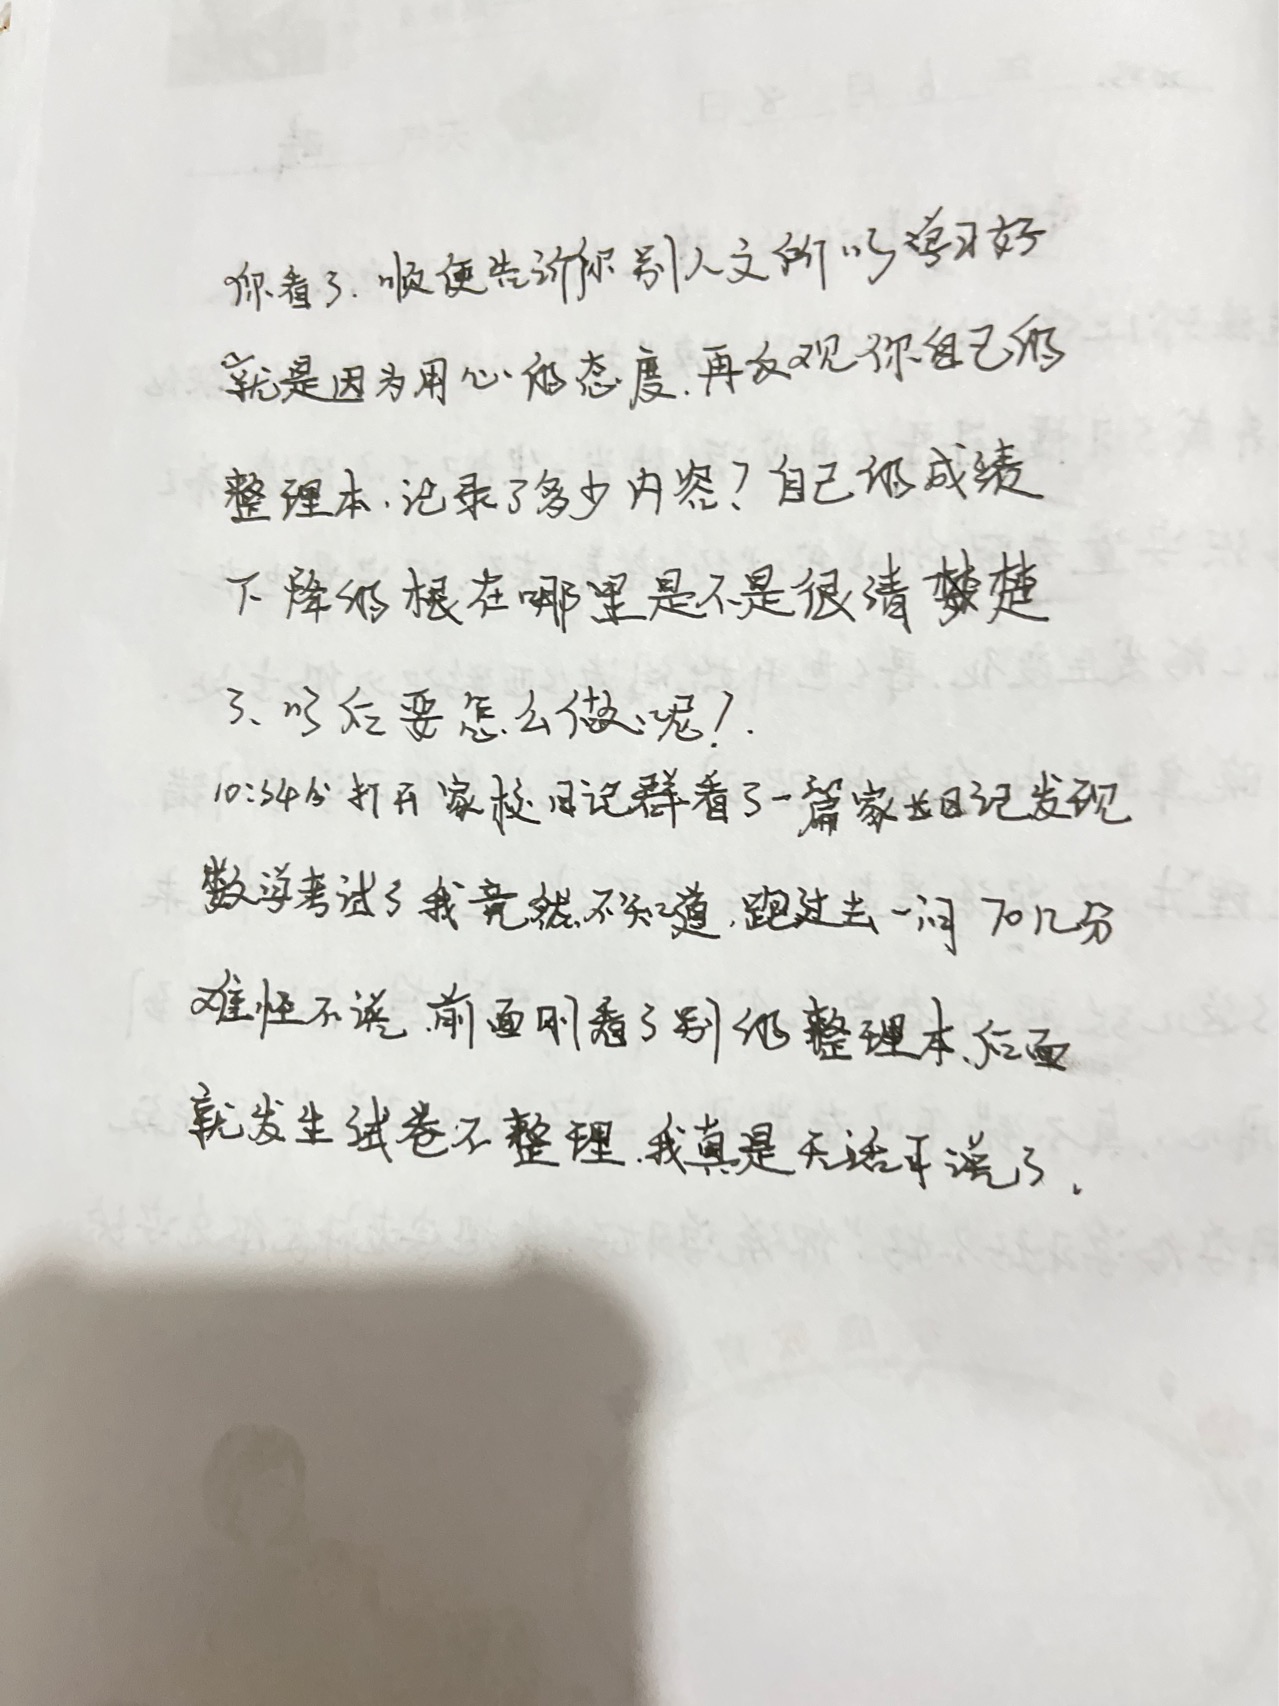 你看了.顺便告诉你别人文所以学习好
就是因为用心的态度.再反观你自己的
整理本.记录了多少内容?自己的成绩
下降的根在哪里是不是很清楚楚
了、以后要怎么做呢!.
10:34分打开家校日记群看了一篇家长日记发现
数学考试了我竟然不知道.跑过去一问70几分
难怪不说.前面刚看了别的整理本、后面
就发生试卷不整理.我真是无话可说了.